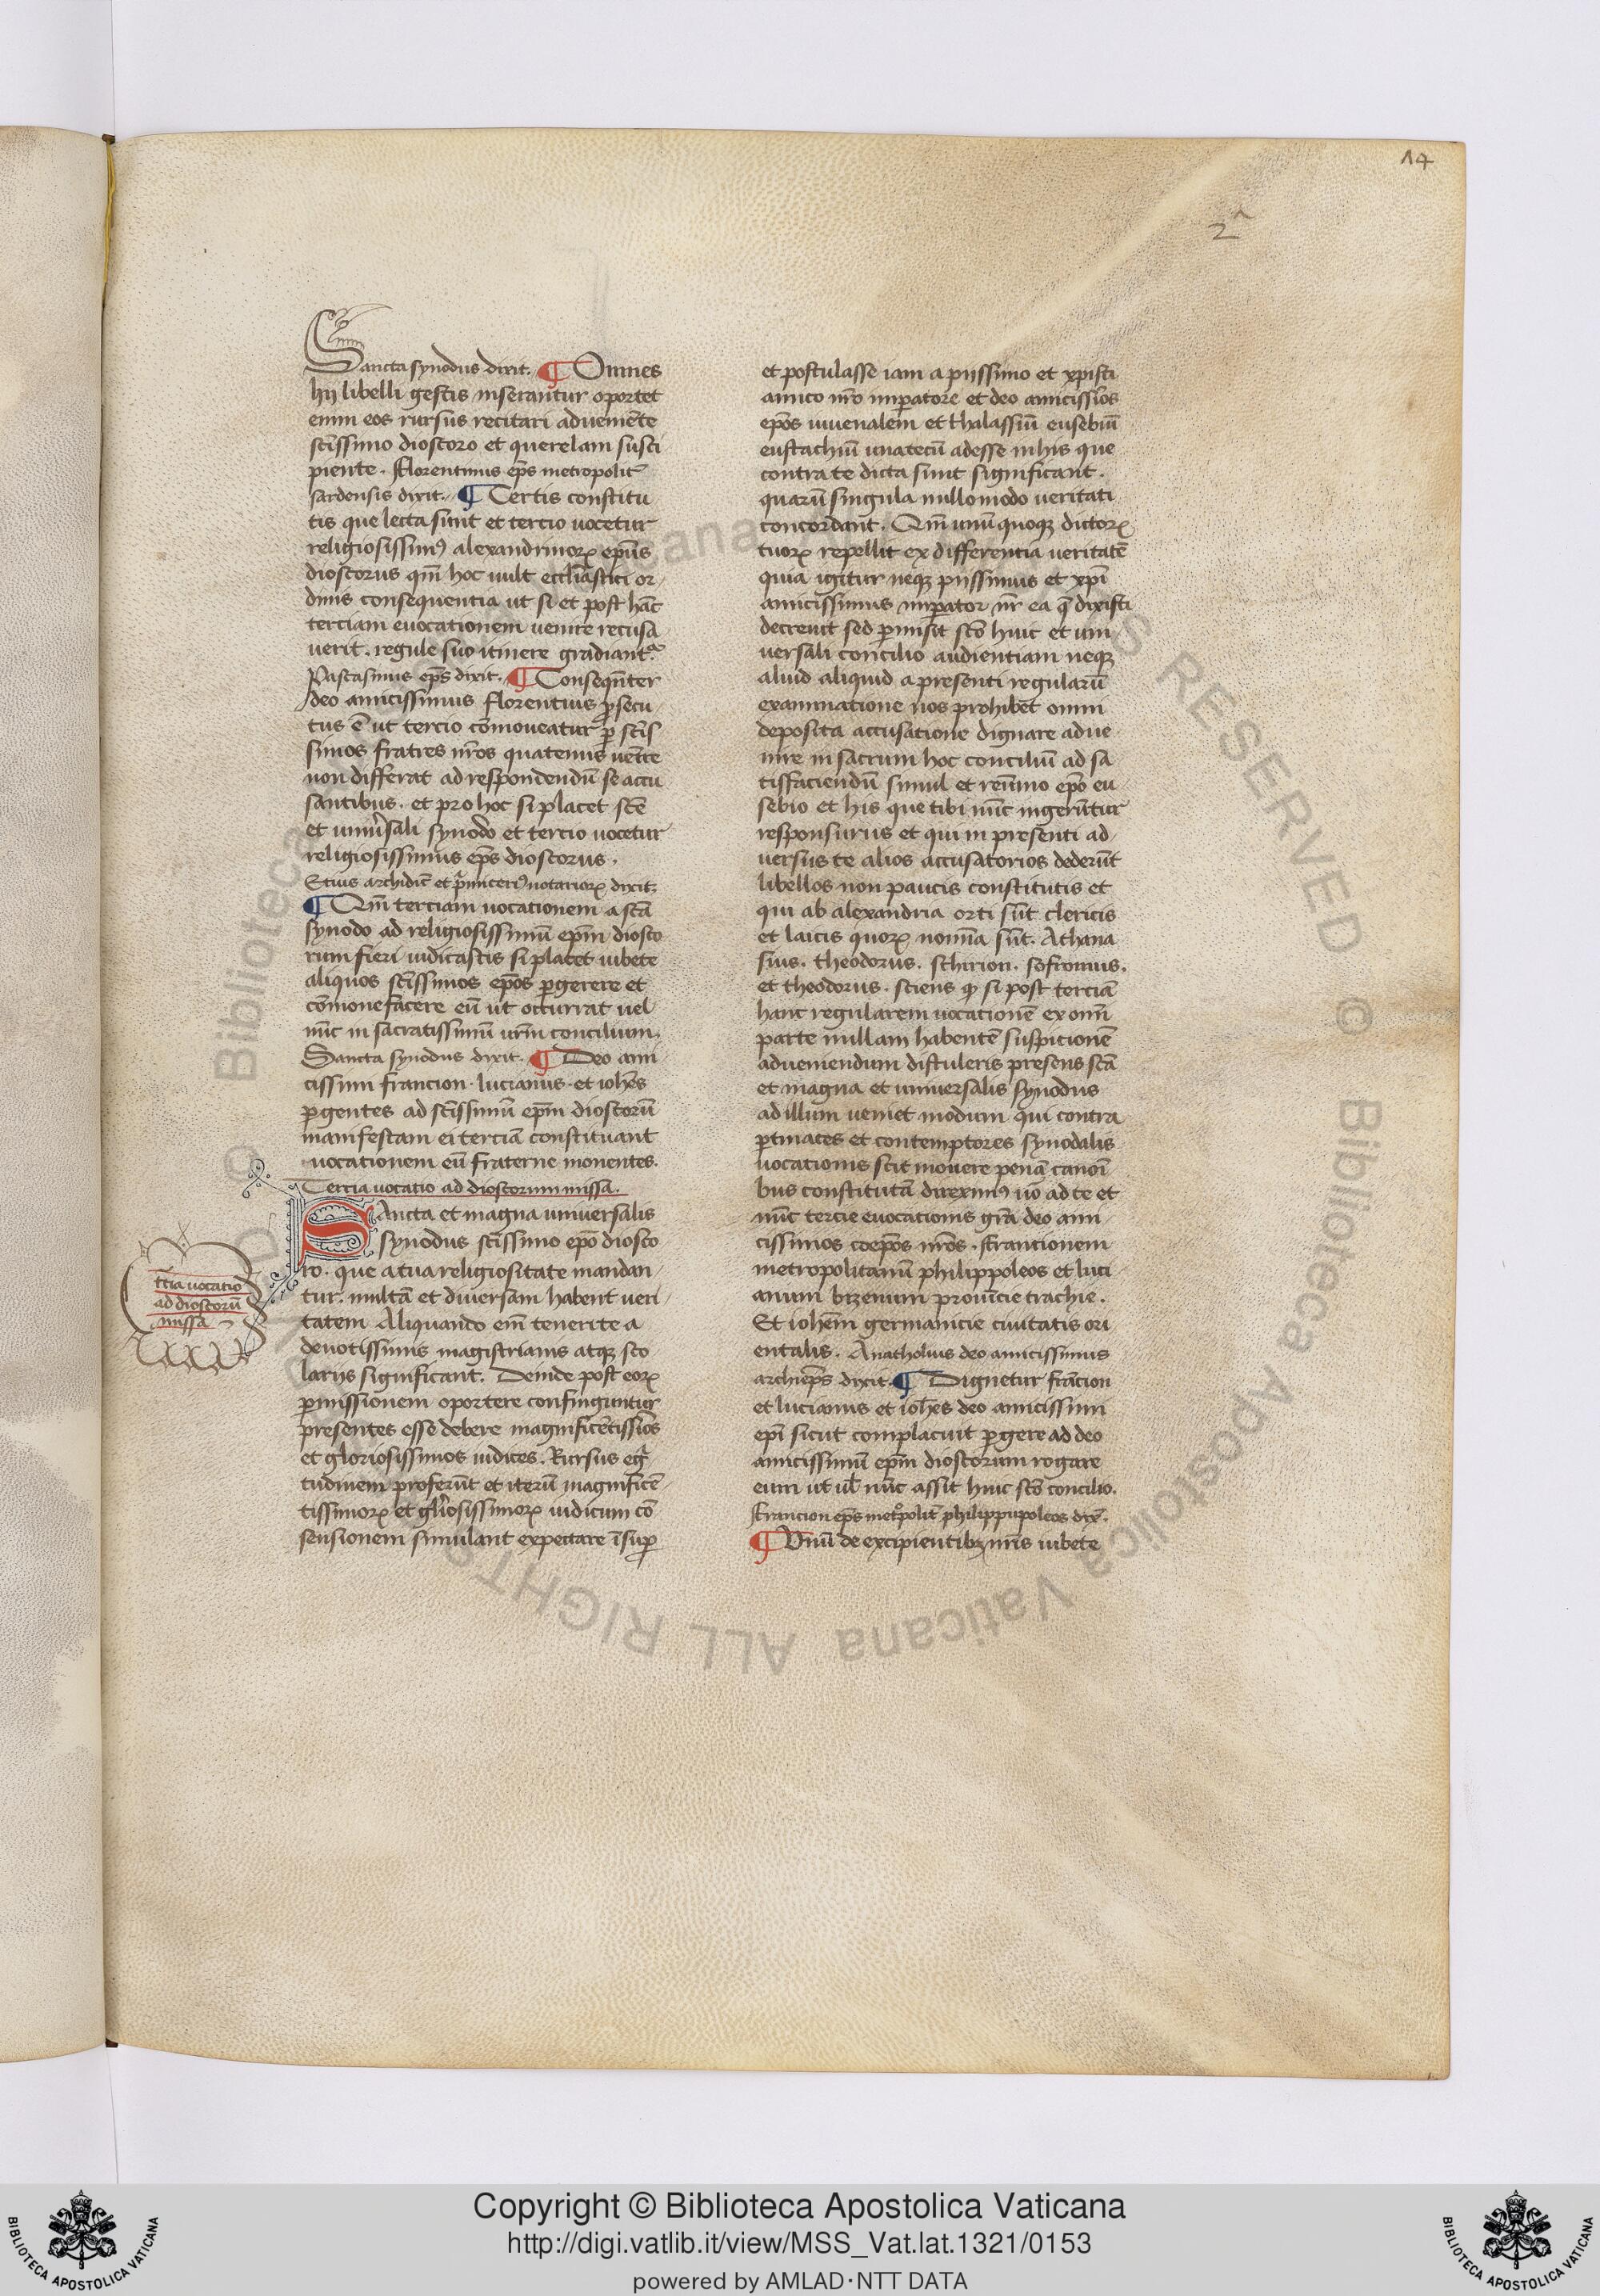 14
2ᵃ
Sancta synodus dixit. ¶ Omnes
hij libelli gestis inserantur oportet
enim eos rursus recitari adueniẽte
sc̃issimo dioscoro et querelam susci
piente. Florentinus ep̃s metropolit̃
sardensis dixit. ¶ Certis constitu
tis que lecta sunt et tercio uocetur
religiosissimꝰ alexandrinoꝝ ep̃us
dioscorus qm̃ hoc uult eccl̃iastici or
dinis consequentia ut si et post hãc
terciam euocationem uenire recusa
uerit. regule suo itinere gradiant᷑.
Pascasinus ep̃s dixit. ¶ Conseqũter
deo amicissimus florentius ꝓsecu
tus ẽ ut tercio cõmoueatur ꝑ sc̃is
simos fratres nr̃os quatenus uenire
non differat ad respondendũ se accu
santibus. et pro hoc si placet sc̃e
et uniũsali synodo et tercio uocetur
religiosissimus ep̃s dioscorus.
Etius archidiac̃ et primiceriꝰ notarioꝝ dixit.
¶ Qm̃ terciam uocationem a sc̃a
synodo ad religiosissimũ ep̃m diosco
rum fieri iudicastis si placet iubete
aliquos sc̃issimos ep̃os ꝑgerere et
cõmonefacere eũ ut occurrat uel
nũc in sacratissimũ ur̃m concilium.
Sancta synodus dixit. ¶ Deo ami
cissimi francion. lucianus. et ioh̃es
ꝑgentes ad sc̃issimũ ep̃m dioscorũ
manifestam ei terciã constituant
uocationem eũ fraterne monentes.
Tercia uocatio ad dioscorum missa.
SAncta et magna uniuersalis
synodus sc̃issimo ep̃o diosco
ro. que a tua religiositate mandan
tur. multã et diuersam habent ueri
tatem Aliquando em̃ tenerite a
deuotissimis magistrianis atqꝫ sco
larijs significant. Deinde post eoꝝ
ꝑmissionem oportere confinguntur
presentes esse debere magnificẽtissimos
et gloriosissimos iudices. Rursus egͥ
tudinem proferũt et iterũ magnificẽ
tissimoꝝ et gl̃iosissimoꝝ iudicum cõ
sensionem simulant expectare ĩsuꝑ
tc̃ia uocatio
ad dioscorũ
missa
et postulasse iam a pijssimo et xp̃isti
amico nr̃o imꝑatore et deo amicissimos
ep̃os iuuenalem et thalassiũ eusebiũ
eustachiũ unatecũ adesse in his que
contra te dicta sunt significant.
quarũ singula nullomodo ueritati
concordant. Qm̃ unũ quoqꝫ dictoꝝ
tuoꝝ repellit ex differentia ueritatẽ
quia igitur neqꝫ pijssimus et xp̃i
amicissimus imꝑator nr̃ ea q̃ dixisti
decreuit sed ꝑmisit sc̃o huic et uni
uersali concilio audientiam neqꝫ
aliud aliquid a presenti regularũ
examinatione nos prohibet omni
deposita accusatione dignare adue
nire in sacrum hoc conciliũ ad sa
tisfaciendũ simul et reũmo ep̃o eu
sebio et his que tibi nũc ingerũtur
responsurus et qui in presenti ad
uersus te alios accusatorios dederũt
libellos non paucis constitutis et
qui ab alexandria orti sũt clericis
et laicis quoꝝ nomĩa sũt. Athana
sius. theodorus. schirion. sofronius.
et theodorus. sciens ꝙ si post terciã
hanc regularem uocationẽ ex om̃i
parte nullam habentẽ suspicionẽ
adueniendum distuleris presens sc̃a
et magna et uniuersalis synodus
ad illum ueniet modum qui contra
ꝑtinaces et contemptores synodalis
uocationis scit mouere penã canoni
bus constitutã direximꝰ uõ ad te et
nũc tercie euocationis gr̃a deo ami
cissimos coep̃os nr̃os. francionem
metropolitanũ philippoleos et luci
anum bizenum prouĩcie trachie.
Et ioh̃em germanicie ciuitatis ori
entalis. Anatholius deo amicissimus
archiep̃s dixit. ¶ Dignetur francion
et lucianus et ioh̃es deo amicissimi
ep̃i sicut complacuit ꝑgere ad deo
amicissimũ ep̃m dioscorum rogare
eum ut ul̃ nũc assit huic sc̃o concilio.
Francion ep̃s metͦpolit̃ philippupoleos dix̃.
¶ Vnũ de excipientibꝫ nr̃is iubete
Copyright © Biblioteca Apostolica Vaticana
http://digi.vatlib.it/view/MSS_Vat.lat.1321/0153
powered by AMLAD·NTT DATA
BIBLIOTECA APOSTOLICA VATICANA
BIBLIOTECA APOSTOLICA VATICANA